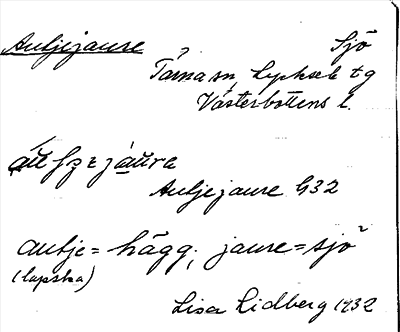 Auljejaure Sjö
Tärna sn Lycksele tg
Västerbottens l.
Auljejaure G32
aulje = hägg; jaure = sjö
(lapska)
Lisa Lidberg 1932